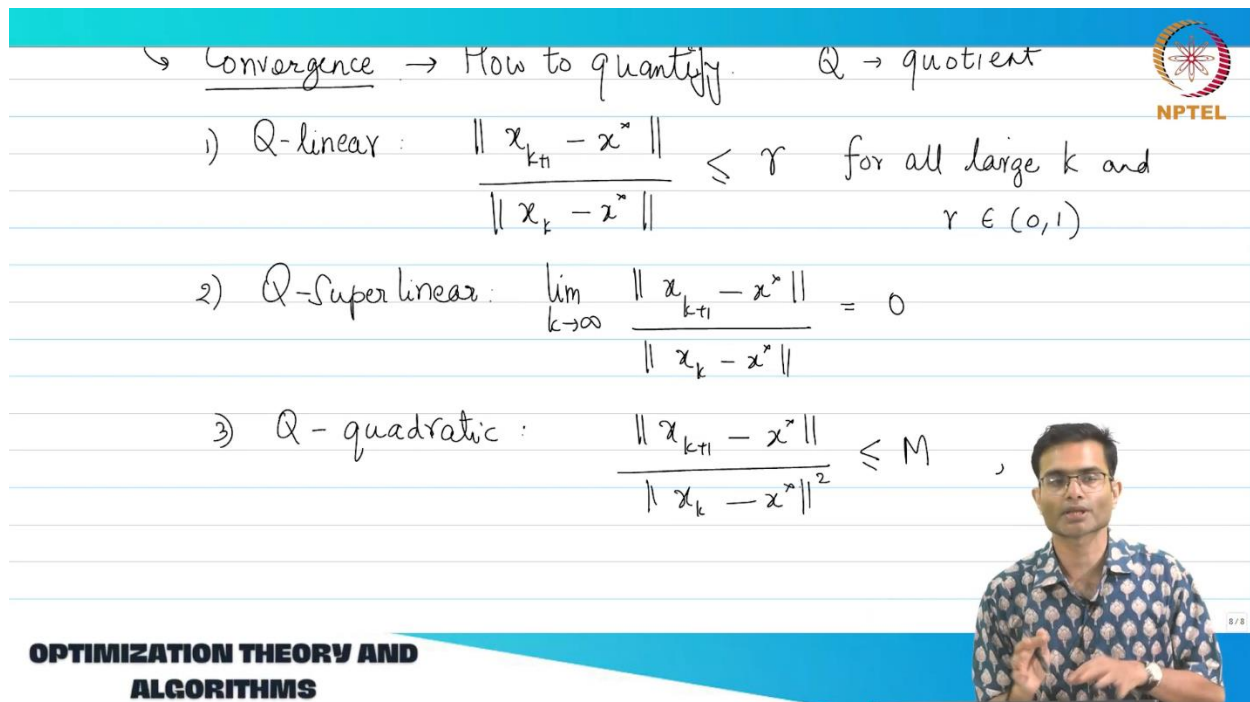 ↳ Convergence → How to quantify. Q → quotient
NPTEL
1) Q-linear : ‖ x_{k+1} − x* ‖ / ‖ x_k − x* ‖ ≤ r for all large k and
r ∈ (0,1)
2) Q-Superlinear : lim_{k→∞} ‖ x_{k+1} − x* ‖ / ‖ x_k − x* ‖ = 0
3) Q - quadratic : ‖ x_{k+1} − x* ‖ / ‖ x_k − x* ‖² ≤ M ,
8/8
OPTIMIZATION THEORY AND
ALGORITHMS